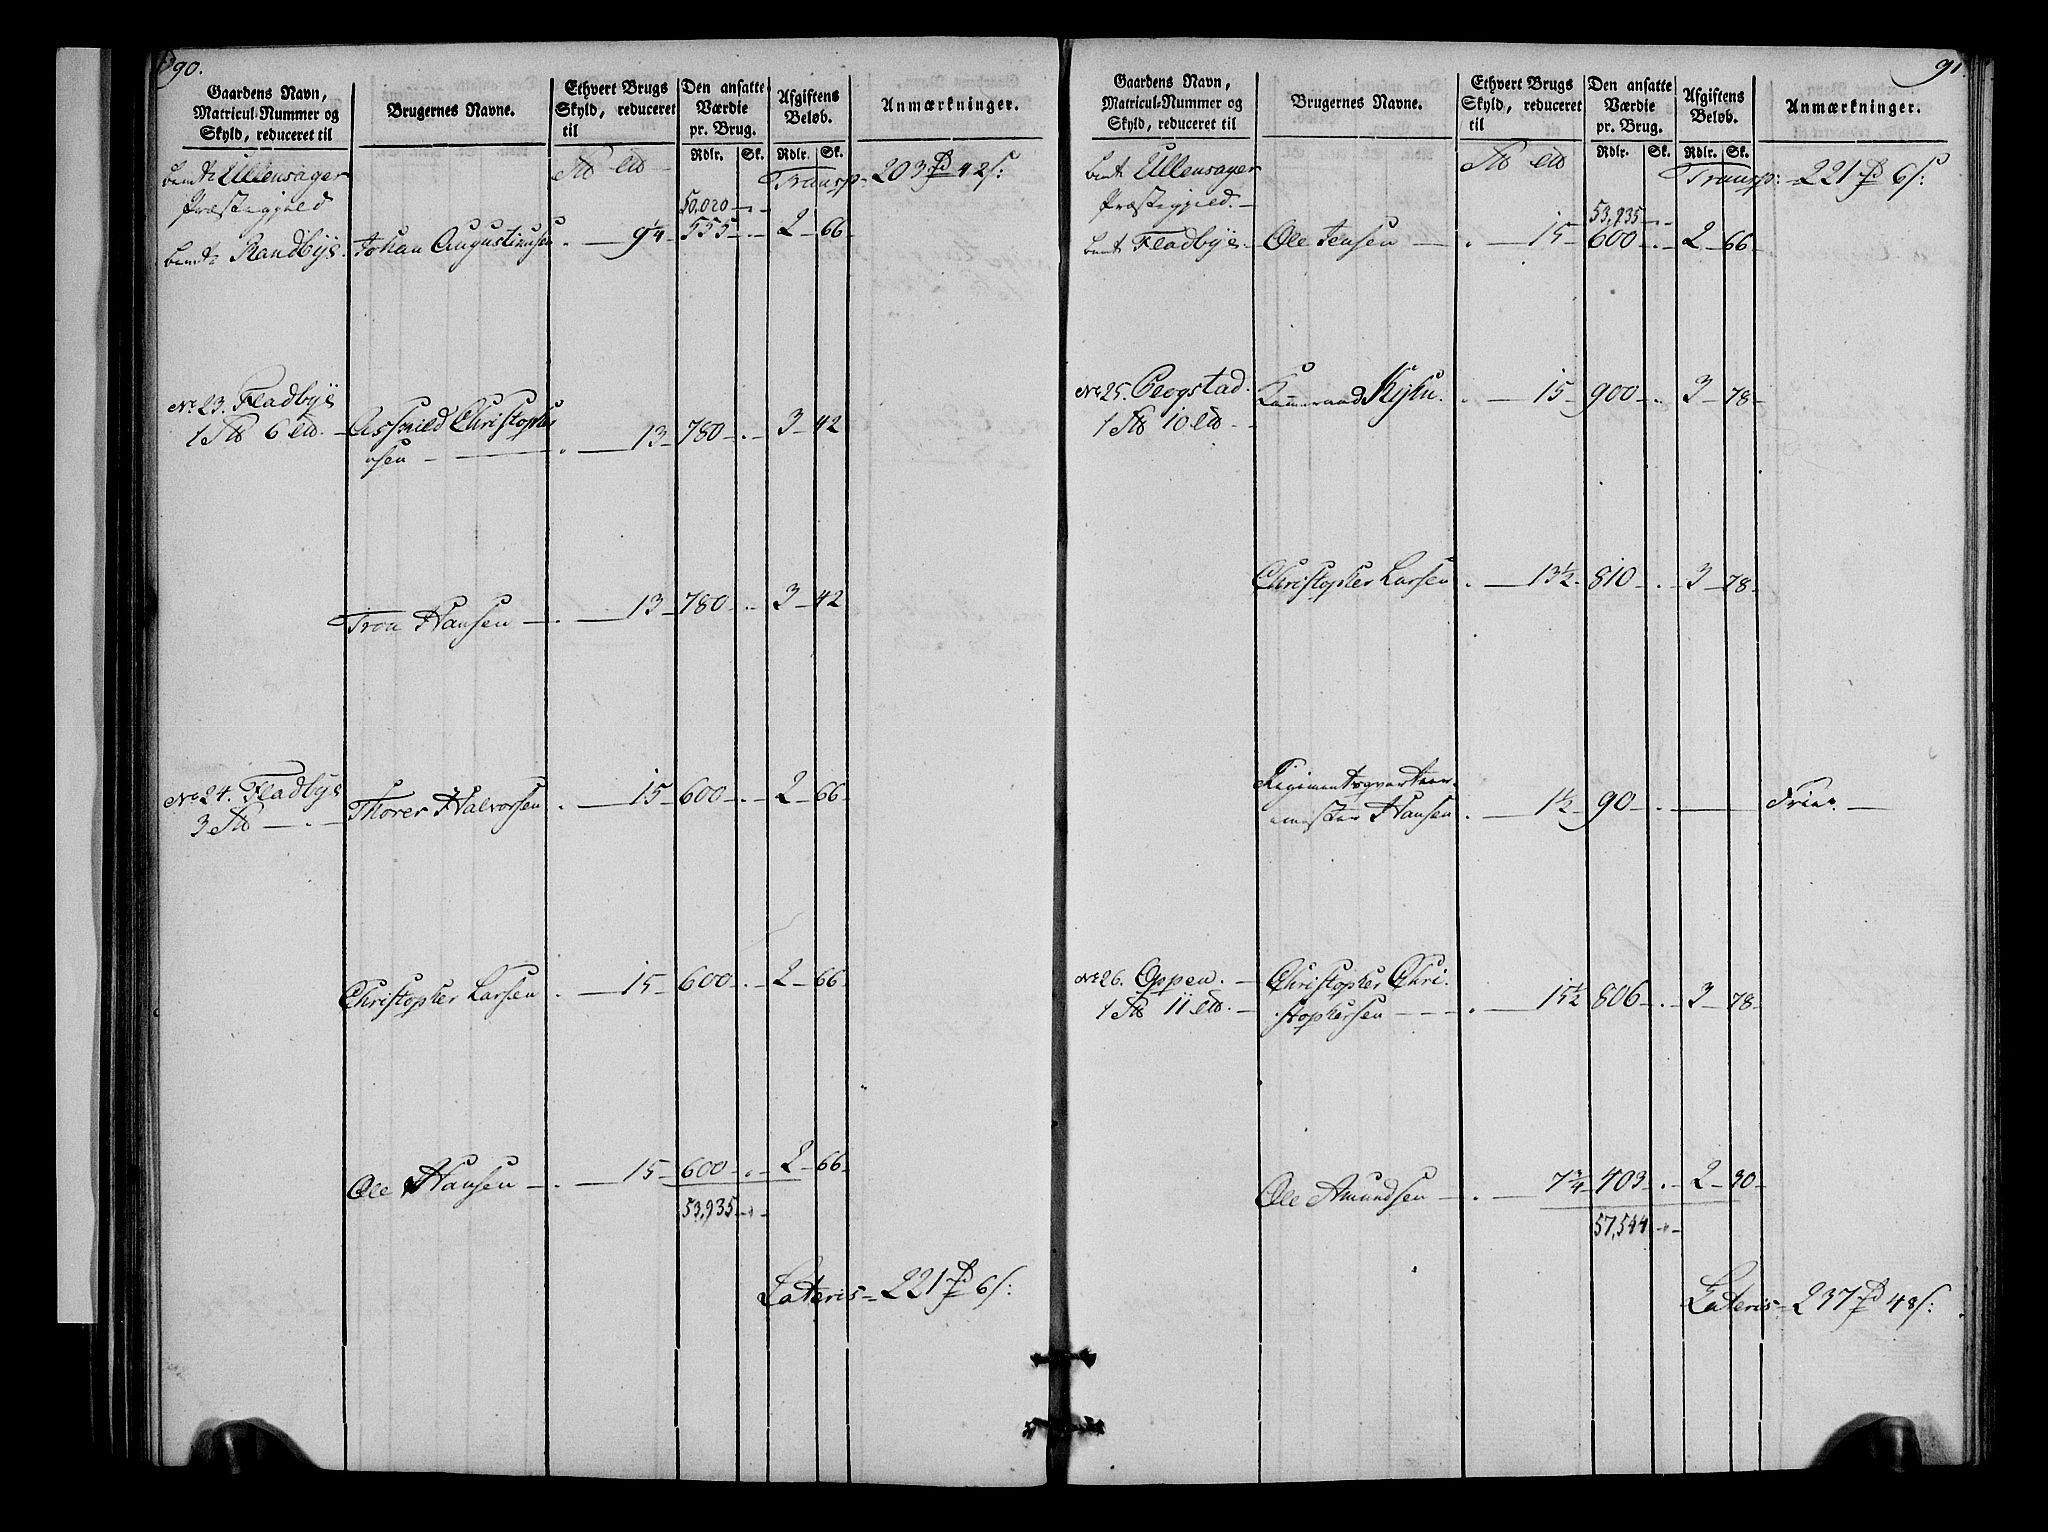 90.
Gaardens Navn, Matricul-Nummer og Skyld, reduceret til
Brugernes Navne.
Ethvert Brugs Skyld, reduceret til
Den ansatte Værdie pr. Brug.
Rdlr. Sk.
Afgiftens Beløb.
Rdlr. Sk.
Anmærkninger.
bemte Ullensager
Præstegjeld
Transp: 203 42 s:
50,020
bemte Randbye. Johan Augustinusen 9 1/4 555 2 66
No 23. Fladbye
1 6 Christopher
nsen 13 780 3 42
Tron Hansen 13 780 3 42
No 24. Fladbye
3 Thorer Halvorsen 15 600 2 66
Christopher Larsen 15 600 2 66
Ole Hansen 15 600 2 66
53,935
Lateris 221 6 s:
91.
Gaardens Navn, Matricul-Nummer og Skyld, reduceret til
Brugernes Navne.
Ethvert Brugs Skyld, reduceret til
Den ansatte Værdie pr. Brug.
Rdlr. Sk.
Afgiftens Beløb.
Rdlr. Sk.
Anmærkninger.
bemt Ullensager
Præstegjeld.
Transp: 221 6 s:
53,935
bemt Fladbye Ole Jensen 15 600 2 66
No 25.
1 10 15 900 3 78
Christopher Larsen 13 1/2 810 3 78
Regimentsqvarteer
mester Hansen 1 1/2 90 Frier.
No 26. Oppen. Christopher Chri
1 11 stophersen 15 1/2 806 3 78
Ole Amundsen 7 3/4 403 2 30
57,544
Lateris 237 48 s: